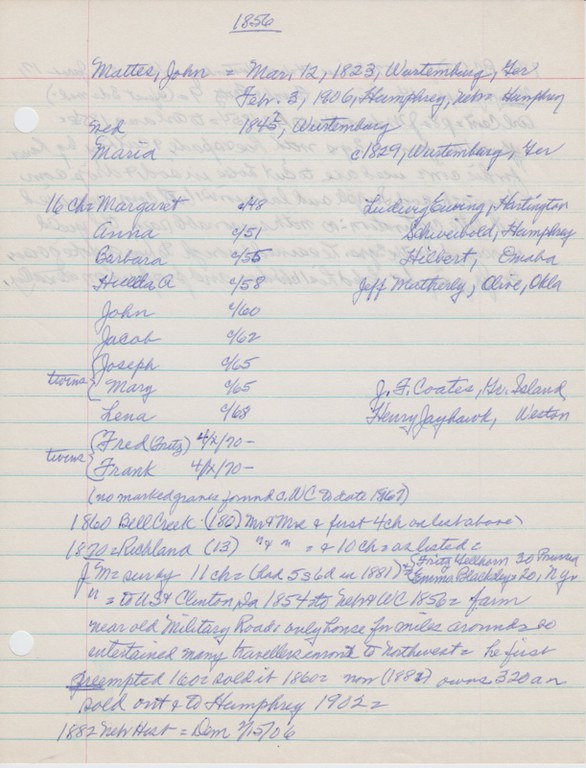 1856
Mattes, John = Mar, 12, 1823, Wurtemburg, Ger
Feb. 3, 1906, Humphrey, Neb = Humphrey
md 1845?, Wurtemburg
Maria c1829, Wurtemburg, Ger
16 ch = Margaret c/48 Ludwig Ewing, Hartington
Anna c/51 Schveibold, Humphrey
Barbara c/55 Hilbert, Omaha
Hulda A c/58 Jeff Matherly, Olive, Okla
John c/60
Jacob c/62
Joseph c/65
twins { Mary c/65 J. F. Coates, Gr. Island
Lena c/68 Henry Jayhawk, Weston
(Fred (Fritz) 4/x/70 -
twins { Frank 4/x/70 -
(no marked graves found c. WC to date 1967)
1860 Bell Creek (180) Mr & Mrs & first 4 ch on list above)
1870 = Richland (13) " & " = & 10 ch = as listed =
J M = survey 11 ch = (had 5 s 6 d in 1881) Fritz Wellhorn 30 Prussia
Emma Blackley = 20, N Y
" = to US & Clinton, Ia 1854 to Neb & WC 1856 = farm
near old Military Road = only house for miles around = so
entertained many travellers enroute to northwest = he first
preempted 160 = sold it 1860 = now (1882) owns 320 a =
sold out & to Humphrey 1902 =
1882 Neb Hist = Dem 2/15/06